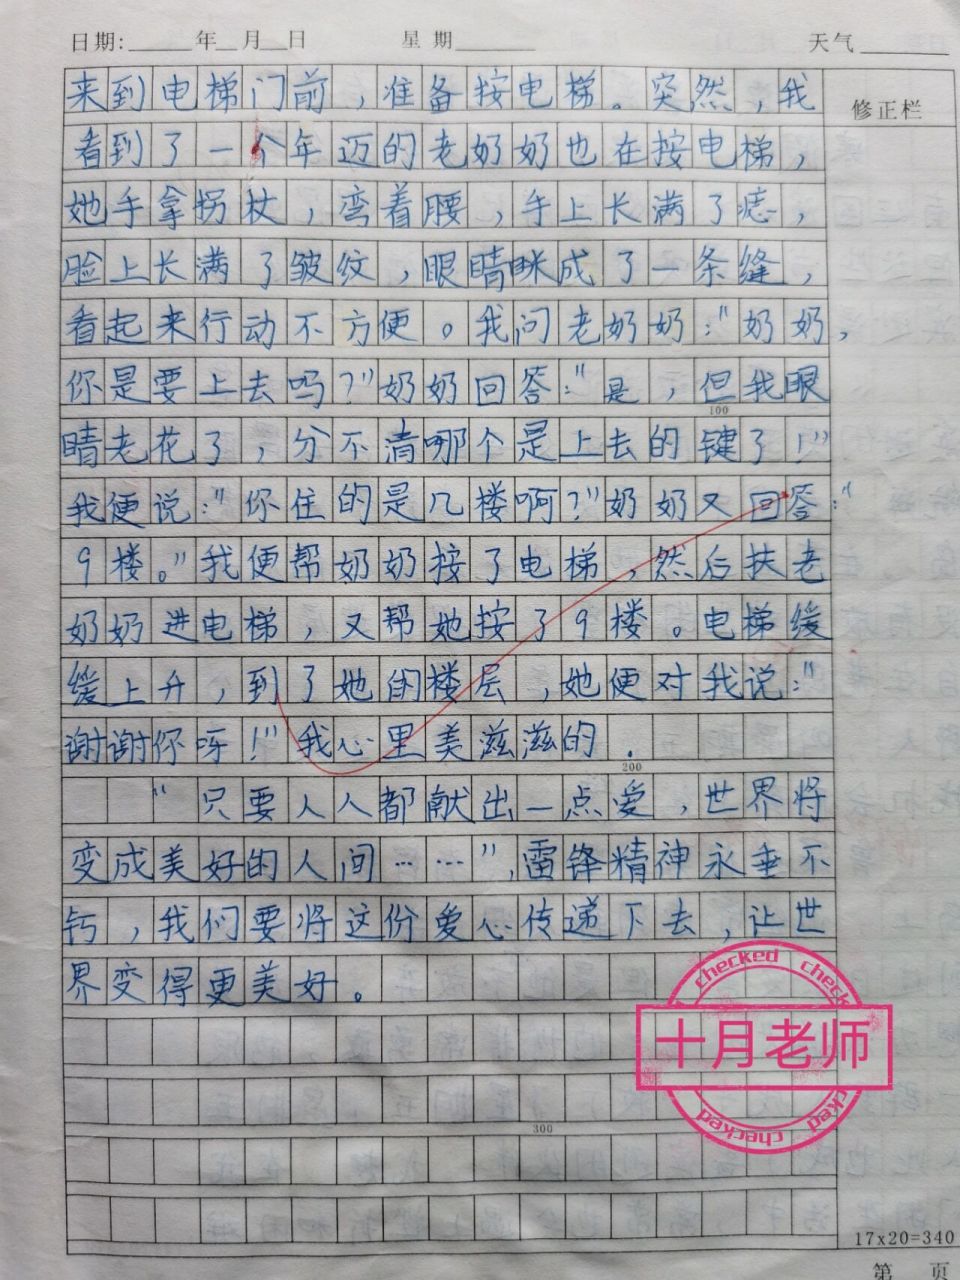 日期:______年__月__日 星期______ 天气______
修正栏
来到电梯门前，准备按电梯。突然，我
看到了一个年迈的老奶奶也在按电梯，
她手拿拐杖，弯着腰，手上长满了痣，
脸上长满了皱纹，眼睛眯成了一条缝，
看起来行动不方便。我问老奶奶："奶奶，
你是要上去吗？"奶奶回答："是，但我眼
睛老花了，分不清哪个是上去的键了！"
100
我便说："你住的是几楼啊？"奶奶又回答："
9楼。"我便帮奶奶按了电梯，然后扶老
奶奶进电梯，又帮她按了9楼。电梯缓
缓上升，到了她的楼层，她便对我说："
谢谢你呀！"我心里美滋滋的．
200
"只要人人都献出一点爱，世界将
变成美好的人间……"，雷锋精神永垂不
朽，我们要将这份爱心传递下去，让世
界变得更美好。
checked check
十月老师
cked checked
300
17x20=340
第 页